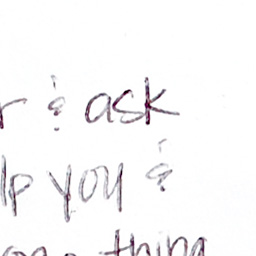 r & ask
lp you &
thing